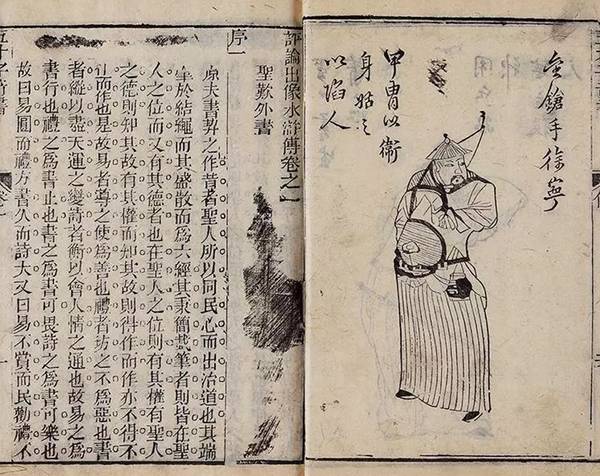 金鎗手徐寧
甲冑以衛
身姑之
以陷人
評論出像水滸傳卷之一
聖歎外書
序一
原夫書契之作昔者聖人所以同民心而出治道也其端
肇於結繩而其盛散而爲六經其秉簡載筆者則皆在聖
人之位而又有其德者也在聖人之位則有其權有聖人
之德則知其故有其權而知其故則得作而作亦不得不
作而作也是故易者導之使爲善也禮者坊之不爲惡也書
者縱以盡天運之變詩者衡以會人情之通也故易之爲
書行也禮之爲書止也書之爲書可畏詩之爲書可樂也
故曰易圓而禮方書久而詩大又曰易不賞而民勸禮不